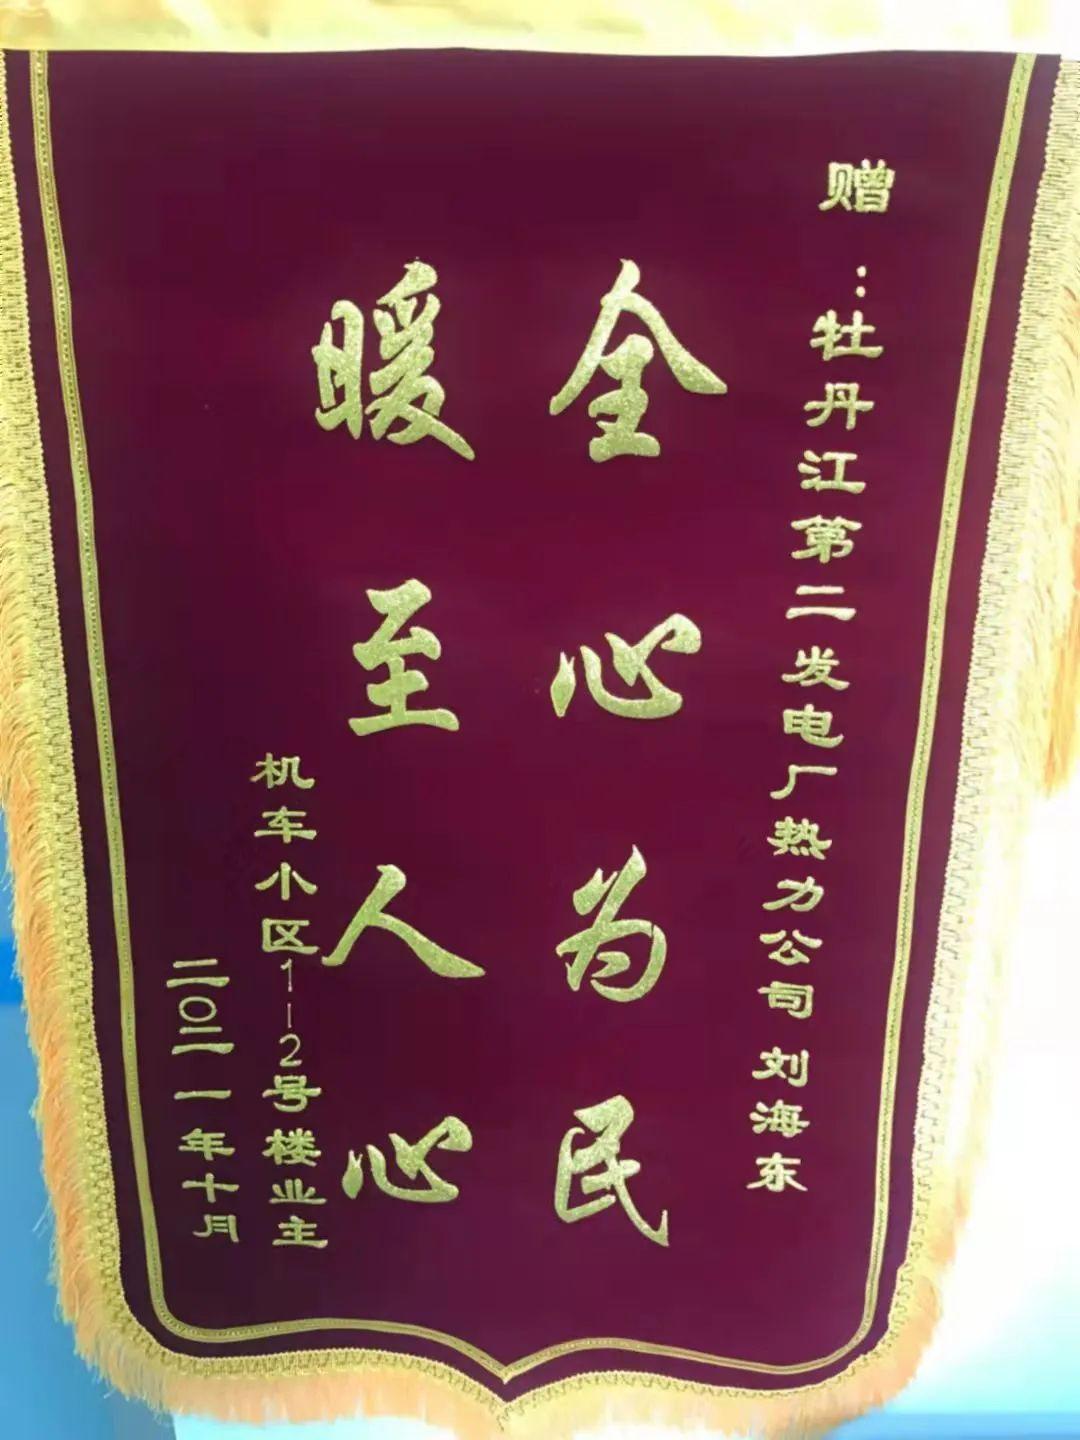 赠：牡丹江第二发电厂热力公司 刘海东
全心为民
暖至人心
机车小区1-2号楼业主
二〇二一年十月